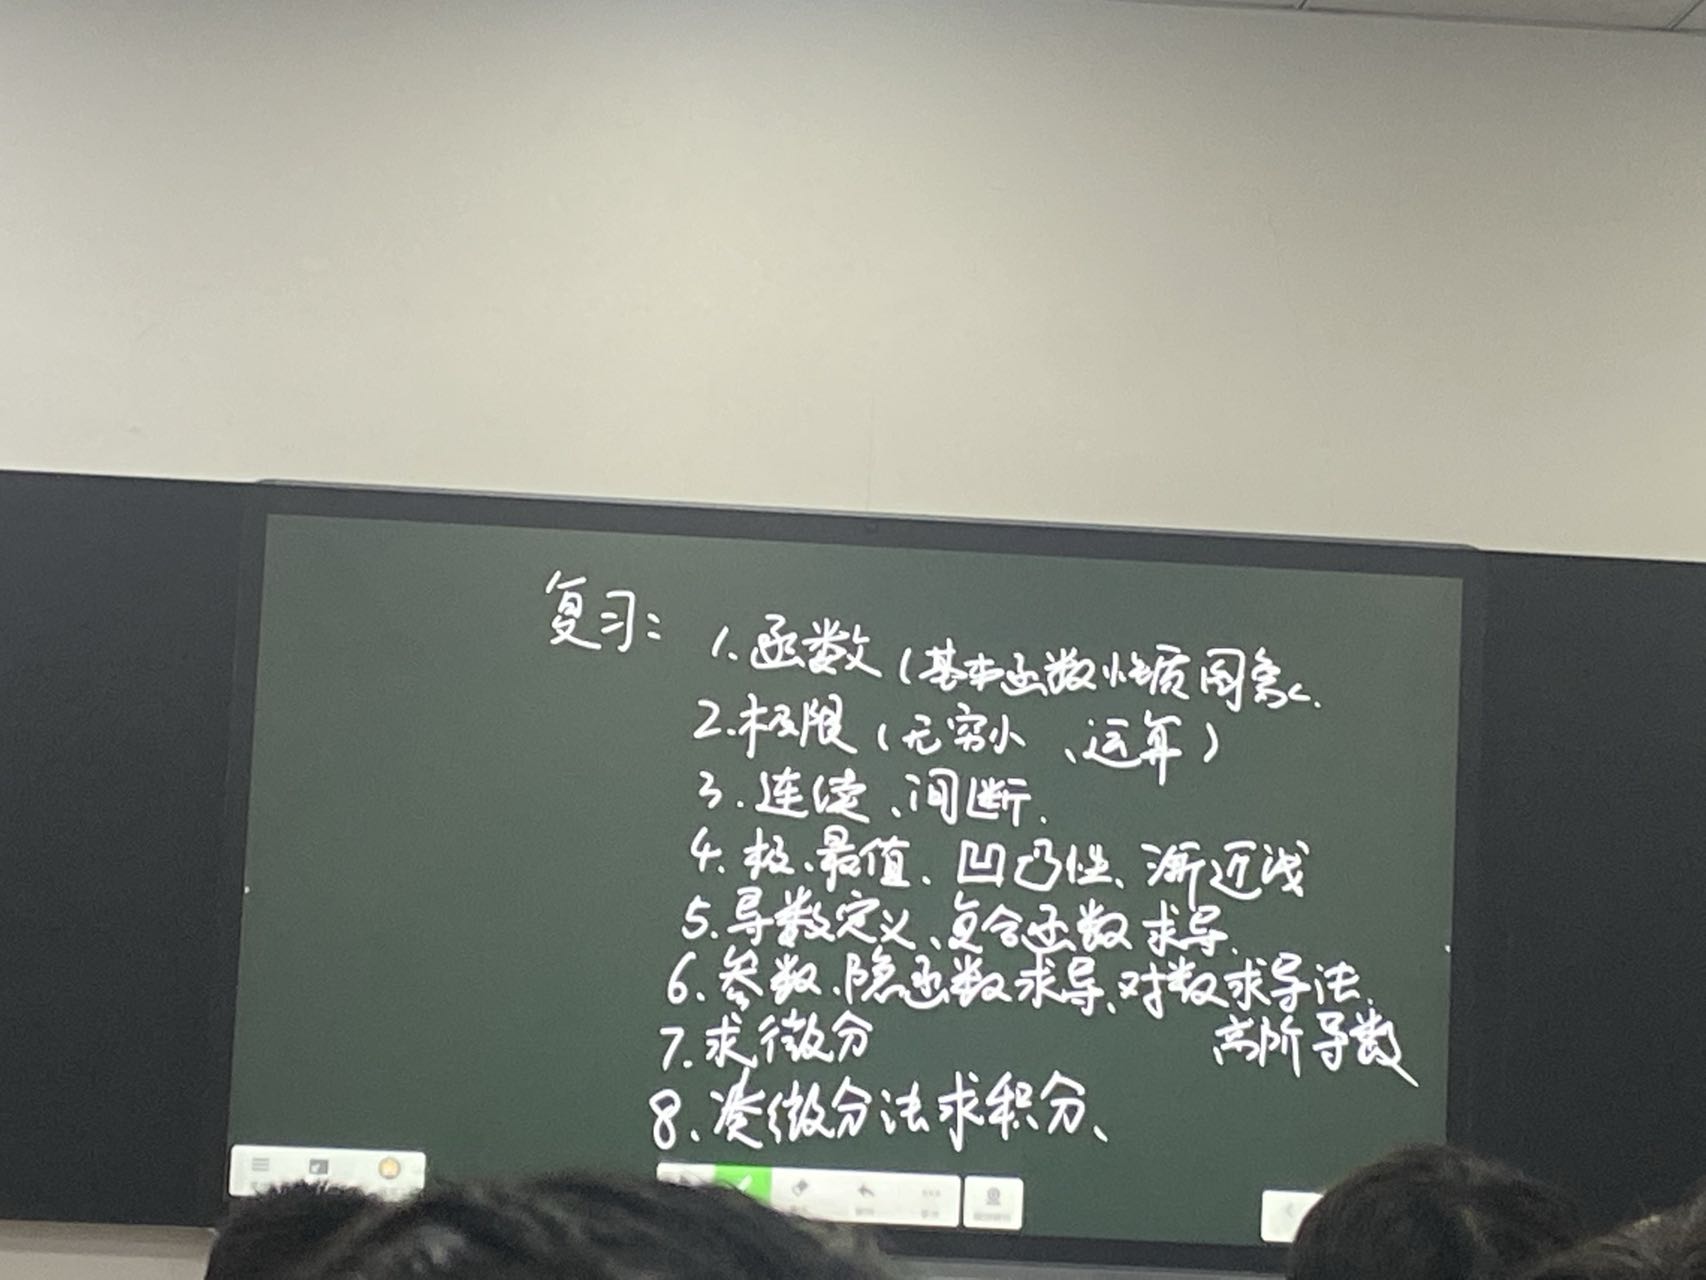 复习：
1.函数（基本函数性质图象.
2.极限（无穷小、运算）
3.连续、间断.
4.极、最值、凹凸性、渐近线
5.导数定义、复合函数求导.
6.参数、隐函数求导、对数求导法.
高阶导数
7.求微分
8.凑微分法求积分、